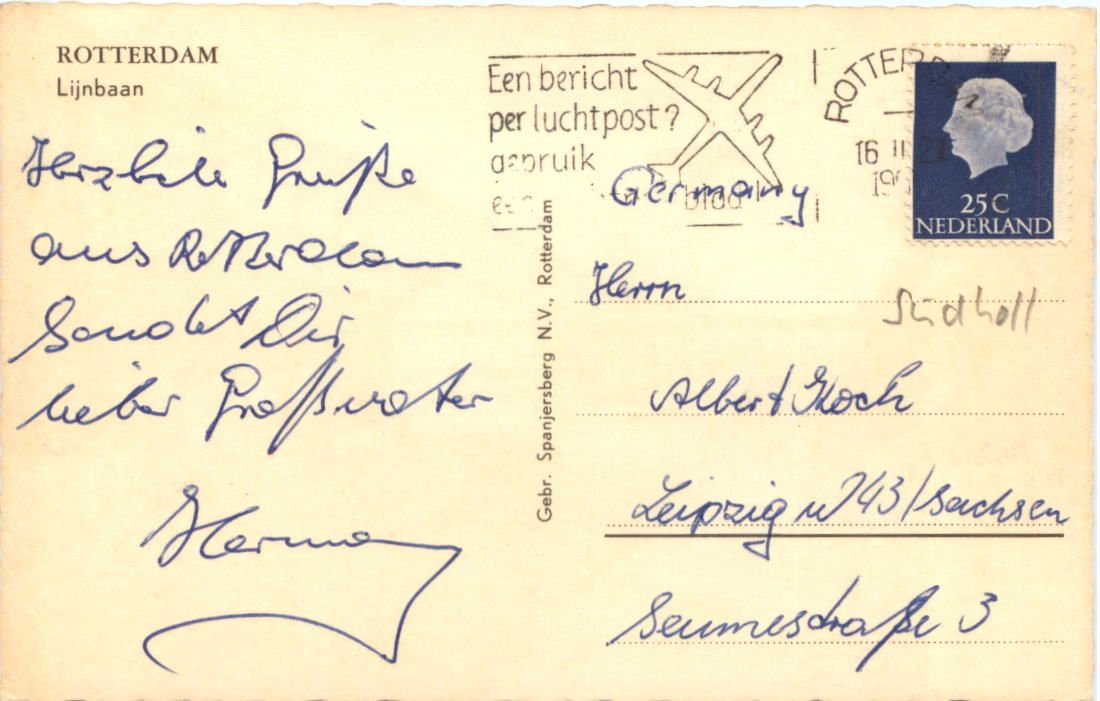 ROTTERDAM
Lijnbaan
Herzliche Grüße
aus Rotterdam
Sendet Dir
lieber Großvater
Herman
Een bericht
per luchtpost?
gebruik
blad
ROTTERD
16 II 21
196
25 C
NEDERLAND
Germany
Gebr. Spanjersberg N.V., Rotterdam
Herrn
Südholl
Albert Koch
Leipzig W 43/Sachsen
Seumestraße 3